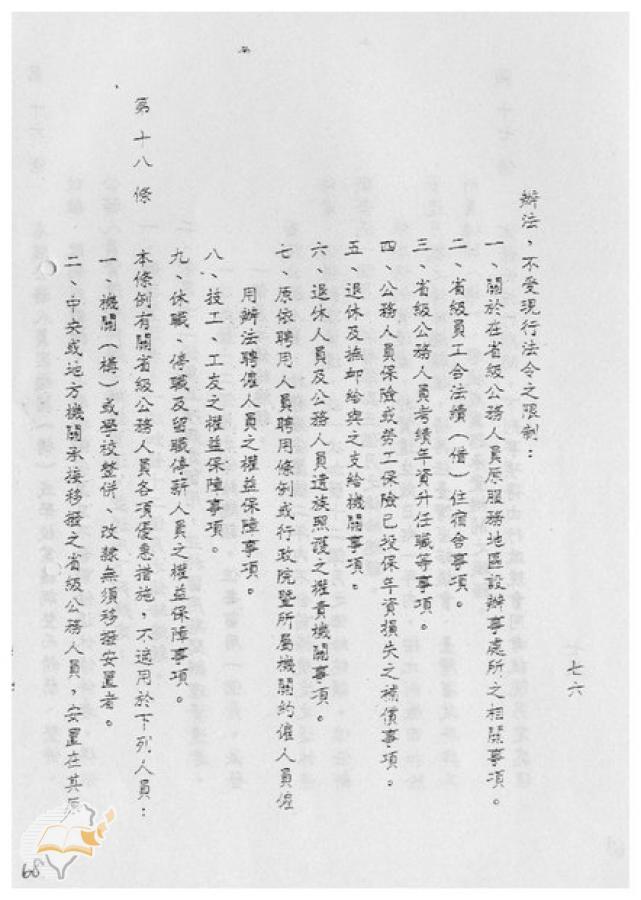 辦法，不受現行法令之限制：
一、關於在省級公務人員原服務地區設辦事處所之相關事項。
二、省級員工合法續（借）住宿舍事項。
三、省級公務人員考績年資升任職等事項。
四、公務人員保險或勞工保險已投保年資損失之補償事項。
五、退休及撫卹給與之支給機關事項。
六、退休人員及公務人員遺族照護之權責機關事項。
七、原依聘用人員聘用條例或行政院暨所屬機關約僱人員僱
用辦法聘僱人員之權益保障事項。
八、技工、工友之權益保障事項。
九、休職、停職及留職停薪人員之權益保障事項。
第十八條　本條例有關省級公務人員各項優惠措施，不適用於下列人員：
一、機關（構）或學校整併、改隸無須移撥安置者。
二、中央或地方機關承接移撥之省級公務人員，安置在其原
七六
68